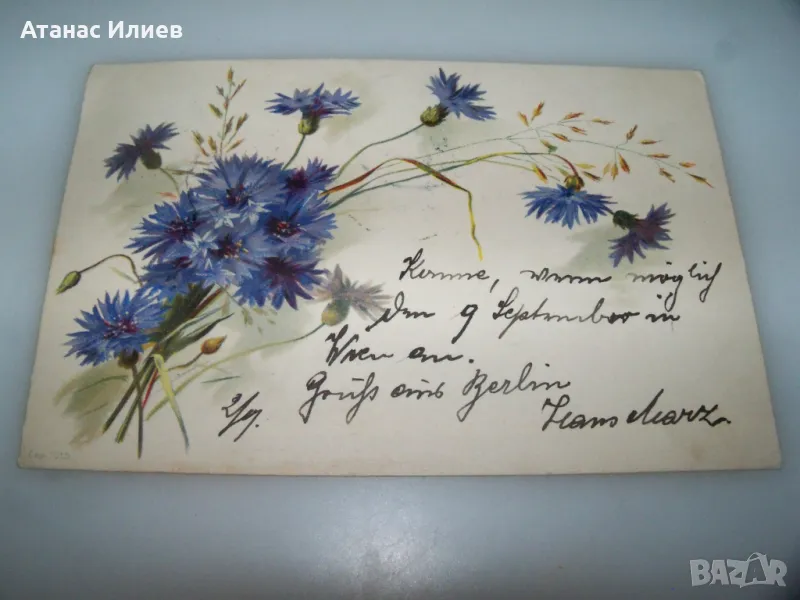 Атанас Илиев
Komme, wenn möglich
den 9 September in
Wien an.
Gruß aus Berlin
2/9.
Hans Marz.
BAZAR